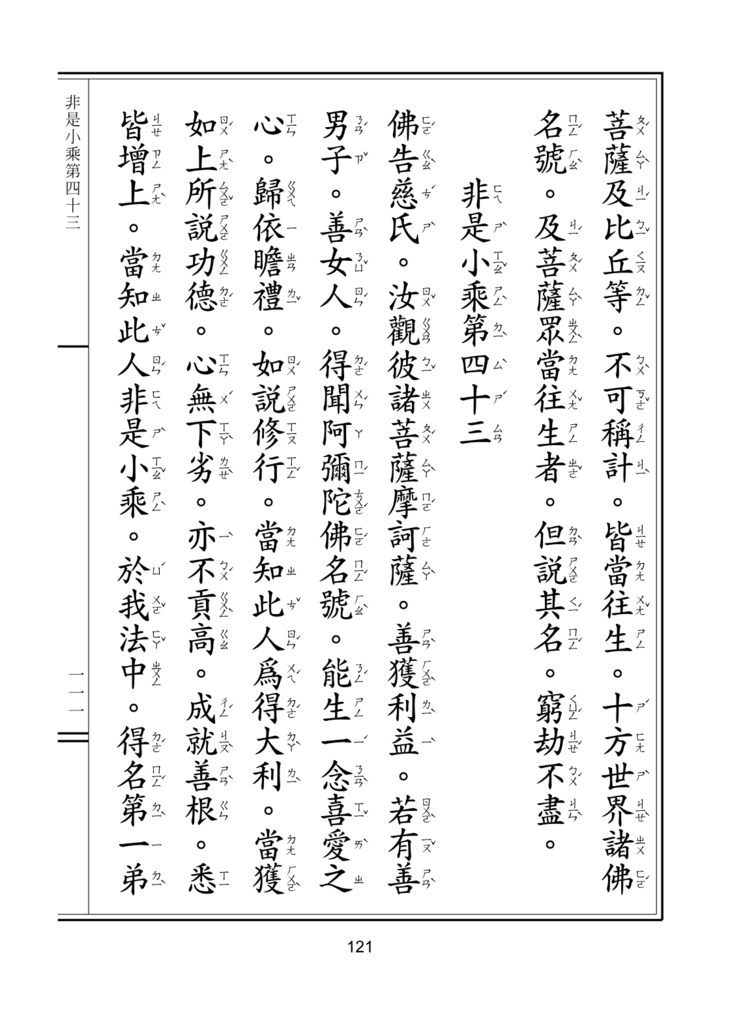 菩薩及比丘等。不可稱計。皆當往生。十方世界諸佛
名號。及菩薩眾當往生者。但說其名。窮劫不盡。
非是小乘第四十三
佛告慈氏。汝觀彼諸菩薩摩訶薩。善獲利益。若有善
男子。善女人。得聞阿彌陀佛名號。能生一念喜愛之
心。歸依瞻禮。如說修行。當知此人為得大利。當獲
如上所說功德。心無下劣。亦不貢高。成就善根。悉
皆增上。當知此人非是小乘。於我法中。得名第一弟
非是小乘第四十三
一一一
121